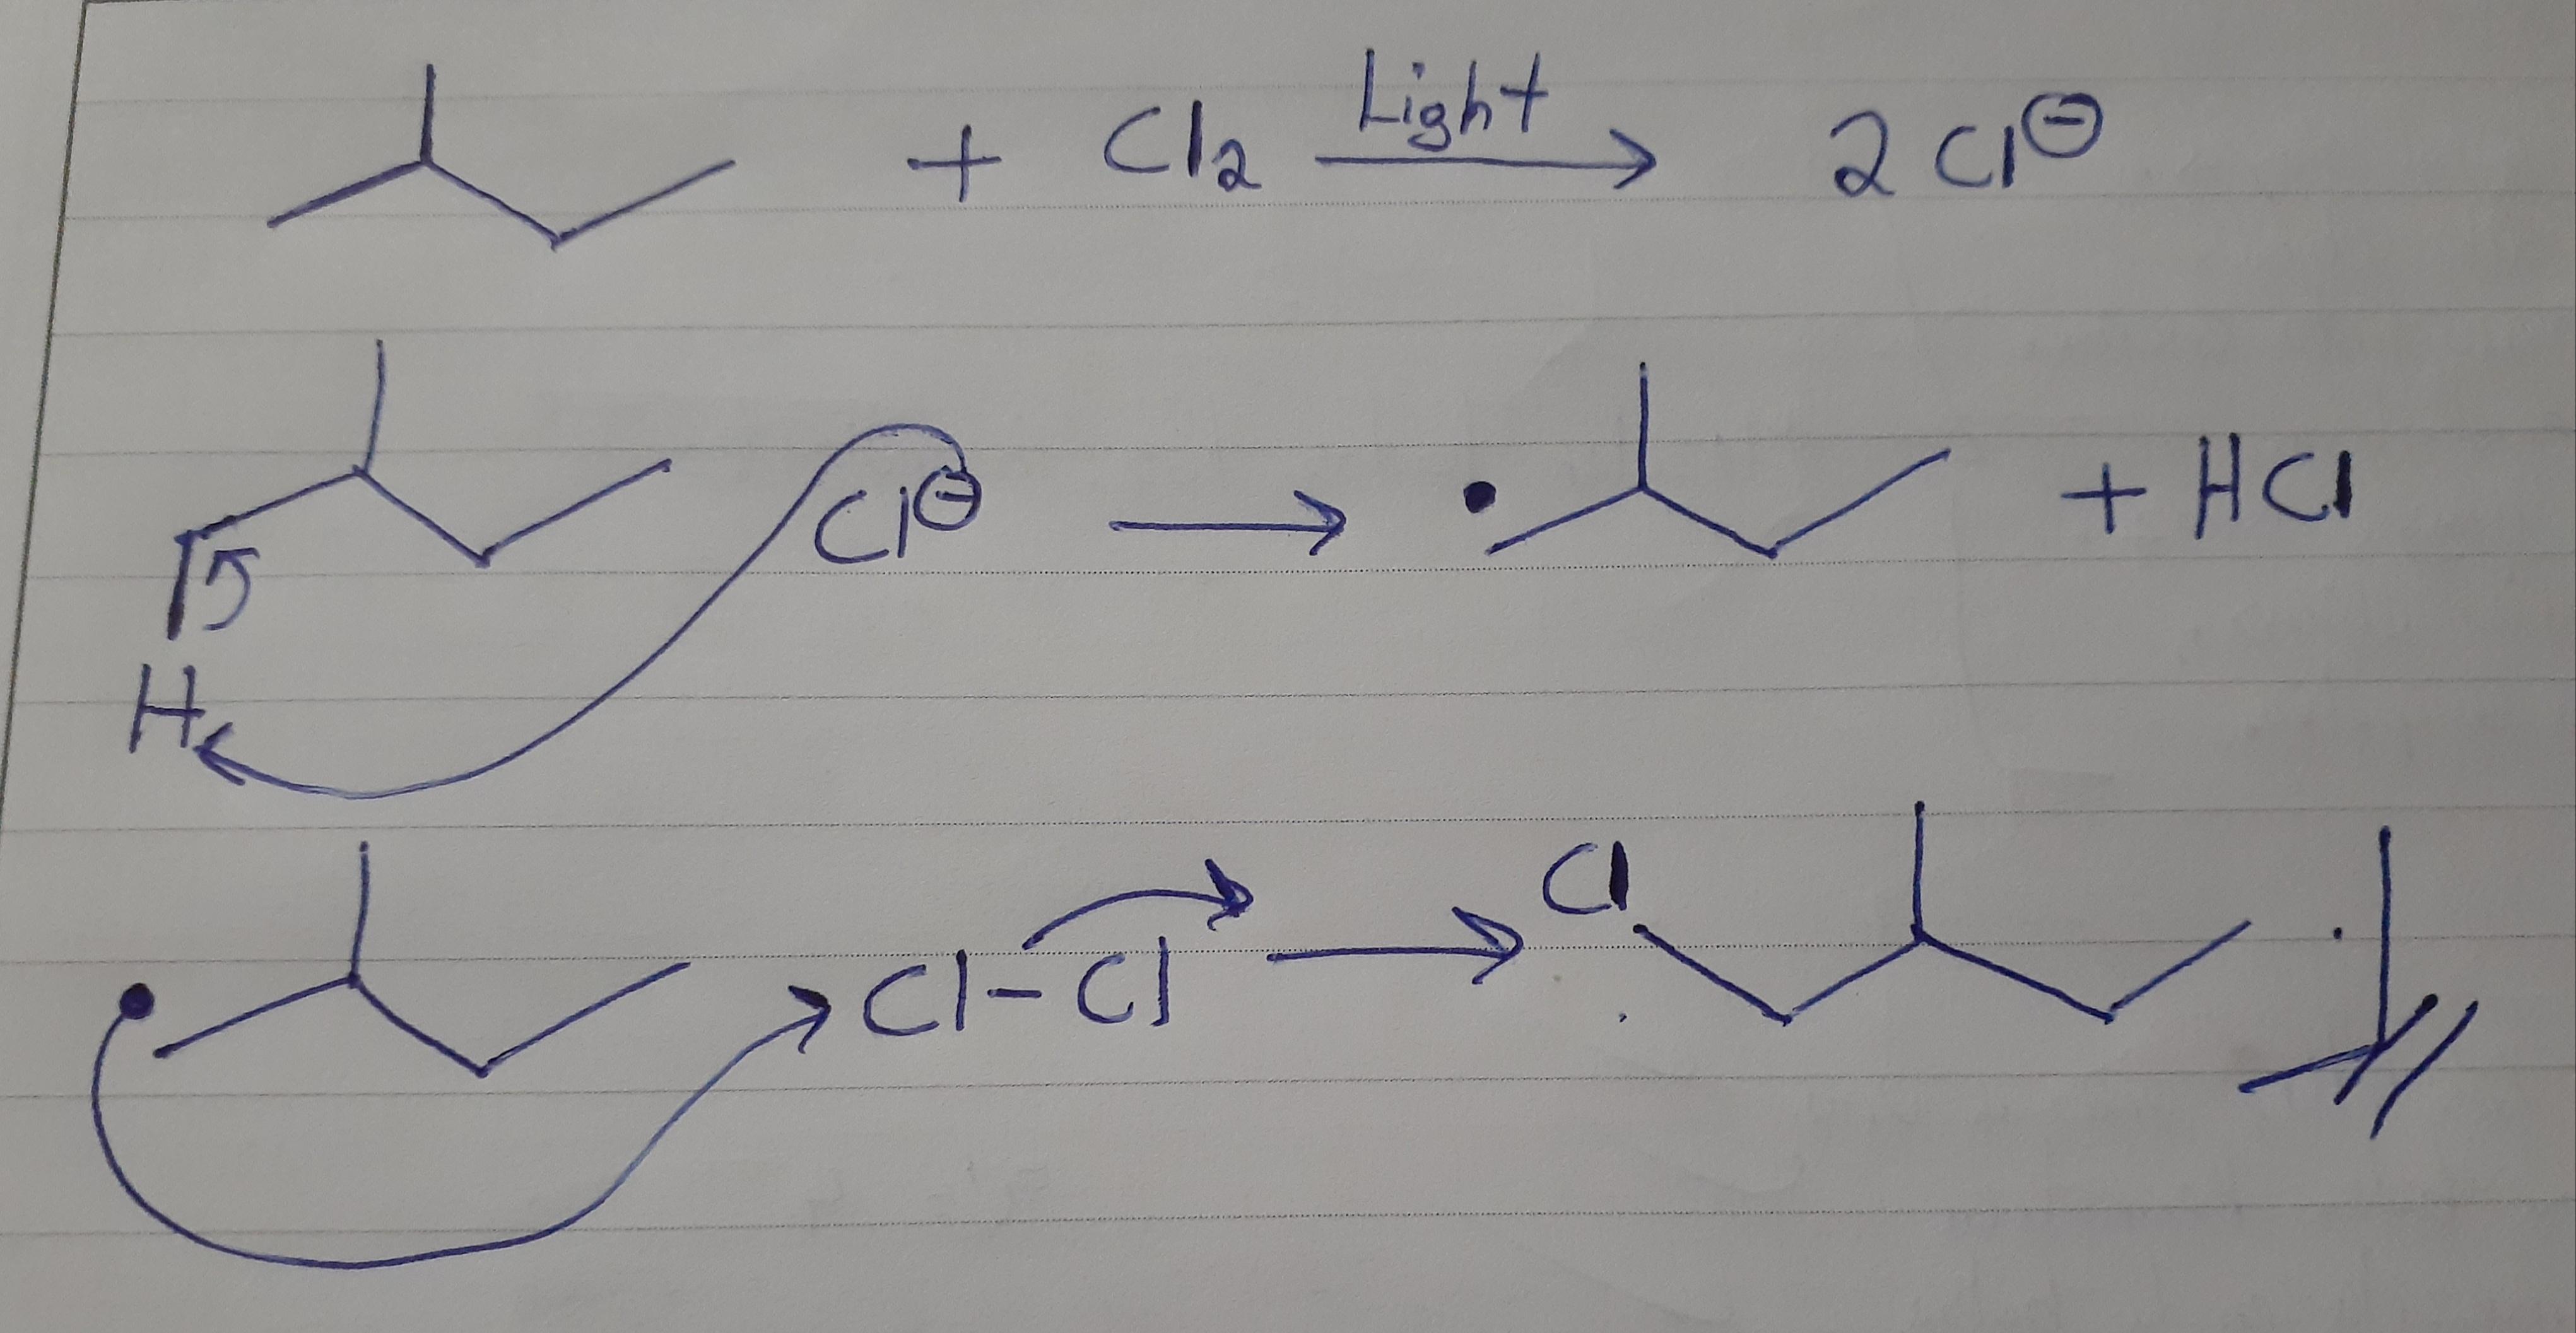 + Cl₂ Light → 2 Cl⊖
Cl⊖ → • + HCl
H
• Cl-Cl → Cl